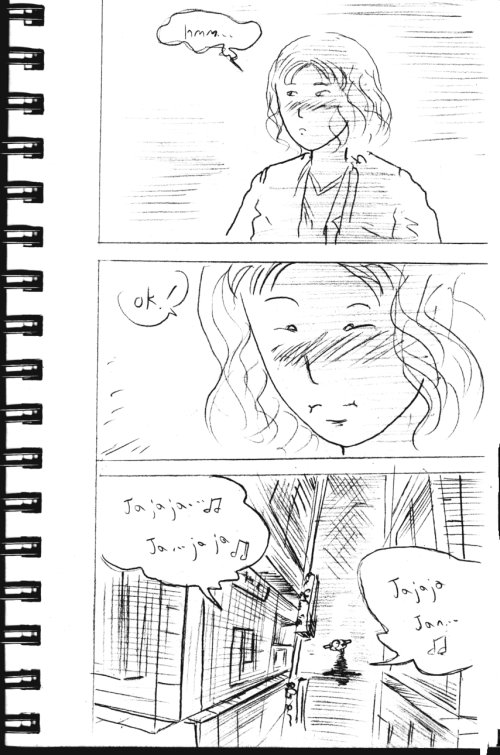 hmm...
ok!
Ja jaja...
Ja... ja ja
Jajaja
Jan...